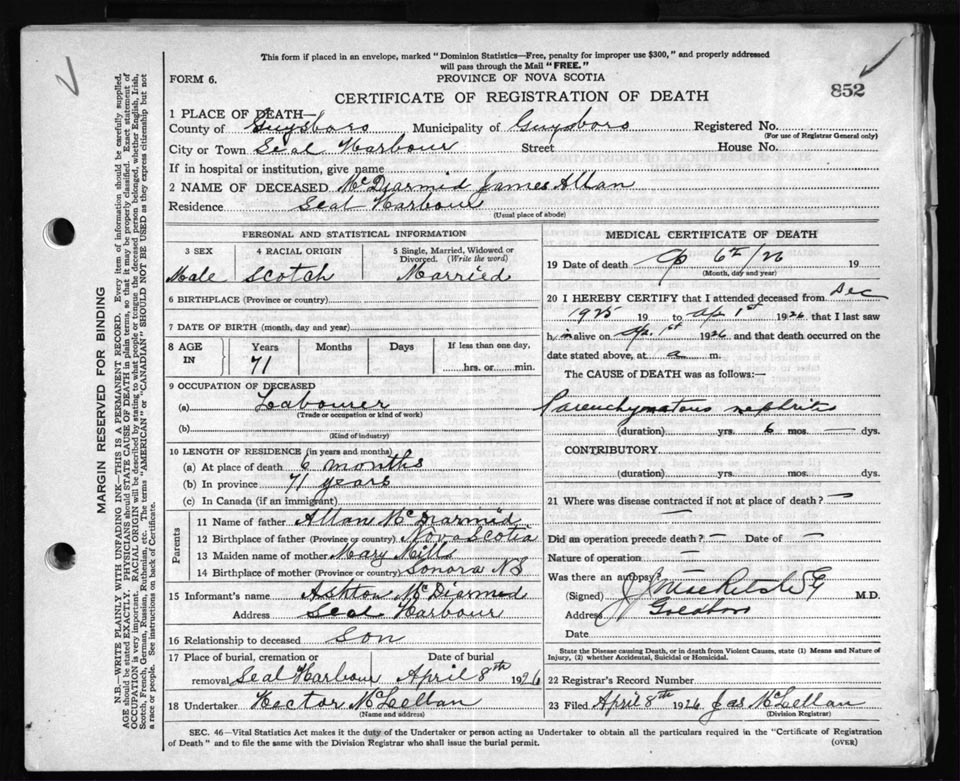 This form if placed in an envelope, marked "Dominion Statistics—Free, penalty for improper use $300," and properly addressed
will pass through the Mail "FREE."
FORM 6.
PROVINCE OF NOVA SCOTIA
852
CERTIFICATE OF REGISTRATION OF DEATH
1 PLACE OF DEATH—
County of Guysboro Municipality of Guysboro Registered No.
(For use of Registrar General only)
City or Town Seal Harbour Street House No.
If in hospital or institution, give name
2 NAME OF DECEASED McDiarmid James Allan
Residence Seal Harbour
(Usual place of abode)
PERSONAL AND STATISTICAL INFORMATION
3 SEX 4 RACIAL ORIGIN 5 Single, Married, Widowed or
Divorced. (Write the word)
Male Scotch Married
6 BIRTHPLACE (Province or country)
7 DATE OF BIRTH (month, day and year)
8 AGE IN Years Months Days If less than one day,
71 hrs. or min.
9 OCCUPATION OF DECEASED
(a) Labourer
(Trade or occupation or kind of work)
(b)
(Kind of industry)
10 LENGTH OF RESIDENCE (in years and months)
(a) At place of death 6 months
(b) In province 71 years
(c) In Canada (if an immigrant)
Parents
11 Name of father Allan McDiarmid
12 Birthplace of father (Province or country) Nova Scotia
13 Maiden name of mother Mary Mills
14 Birthplace of mother (Province or country) Sonora N S
15 Informant's name Ashton McDiarmid
Address Seal Harbour
16 Relationship to deceased Son
17 Place of burial, cremation or Date of burial
removal Seal Harbour April 8th 1926
18 Undertaker Hector McLellan
(Name and address)
MEDICAL CERTIFICATE OF DEATH
19 Date of death Ap 6th/26 19
(Month, day and year)
20 I HEREBY CERTIFY that I attended deceased from Dec
1925 19 to Ap. 1st 1926 that I last saw
him alive on Ap. 1st 1926 and that death occurred on the
date stated above, at a m.
The CAUSE OF DEATH was as follows:—
Parenchymatous nephritis
(duration) yrs. 6 mos. — dys.
CONTRIBUTORY
(duration) yrs. mos. dys.
21 Where was disease contracted if not at place of death? —
Did an operation precede death? — Date of —
Nature of operation —
Was there an autopsy? —
(Signed) M.D.
Address Goldboro
Date
State the Disease causing Death, or in death from Violent Causes, state (1) Means and Nature of
Injury, (2) whether Accidental, Suicidal or Homicidal.
22 Registrar's Record Number
23 Filed April 8th 1926 Jas McLellan
(Division Registrar)
SEC. 46—Vital Statistics Act makes it the duty of the Undertaker or person acting as Undertaker to obtain all the particulars required in the "Certificate of Registration
of Death" and to file the same with the Division Registrar who shall issue the burial permit.
(OVER)
MARGIN RESERVED FOR BINDING
N.B. WRITE PLAINLY WITH UNFADING INK—THIS IS A PERMANENT RECORD. Every item of information should be carefully supplied.
AGE should be stated EXACTLY. PHYSICIANS should STATE CAUSE OF DEATH in plain terms, so that it may be properly classified. Exact statement of
OCCUPATION is very important. RACIAL ORIGIN will be described by stating to what people or tongue the deceased person belonged, whether English, Irish,
Scotch, French, German, Russian, Ruthenian, etc. The terms "AMERICAN" or "CANADIAN" SHOULD NOT BE USED as they express citizenship but not
a race or people. See instructions on back of Certificate.